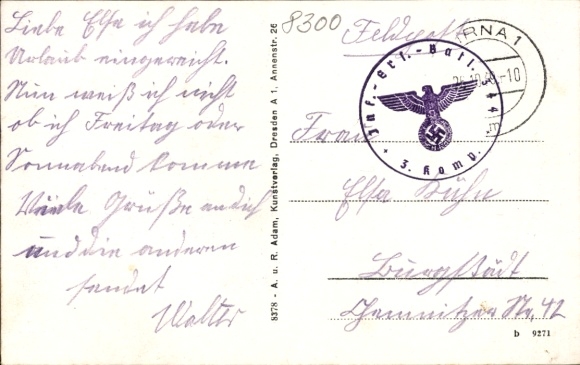 Liebe Elsa ich habe
Urlaub eingereicht.
Nun weiß ich nicht
ob ich Freitag oder
Sonnabend komme
Viele Grüße an dich
und die anderen
sendet
Walter
8378 - A. u. R. Adam, Kunstverlag, Dresden A 1, Annenstr. 26
8300
Feldpost
PIRNA 1
-10
Inf.-Ers.-Batl. 44
3. Komp.
Frau
Elsa Kühn
Burgstädt
Chemnitzer Str. 42
b 9271